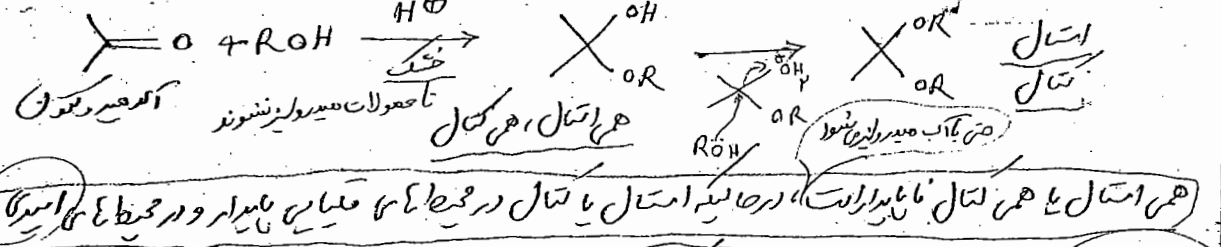 =O + ROH H⊕ → OH OR → OR OR استال
خشک ⊕OH₂ کتال
آلدهید و کتون تا محصولات هیدرولیز نشوند همی استال، همی کتال OR
RÖH حتی با آب هیدرولیز می‌شود
همی استال یا همی کتال ناپایدار است، درحالیکه استال یا کتال در محیط‌های قلیایی پایدار و در محیط‌های اسیدی